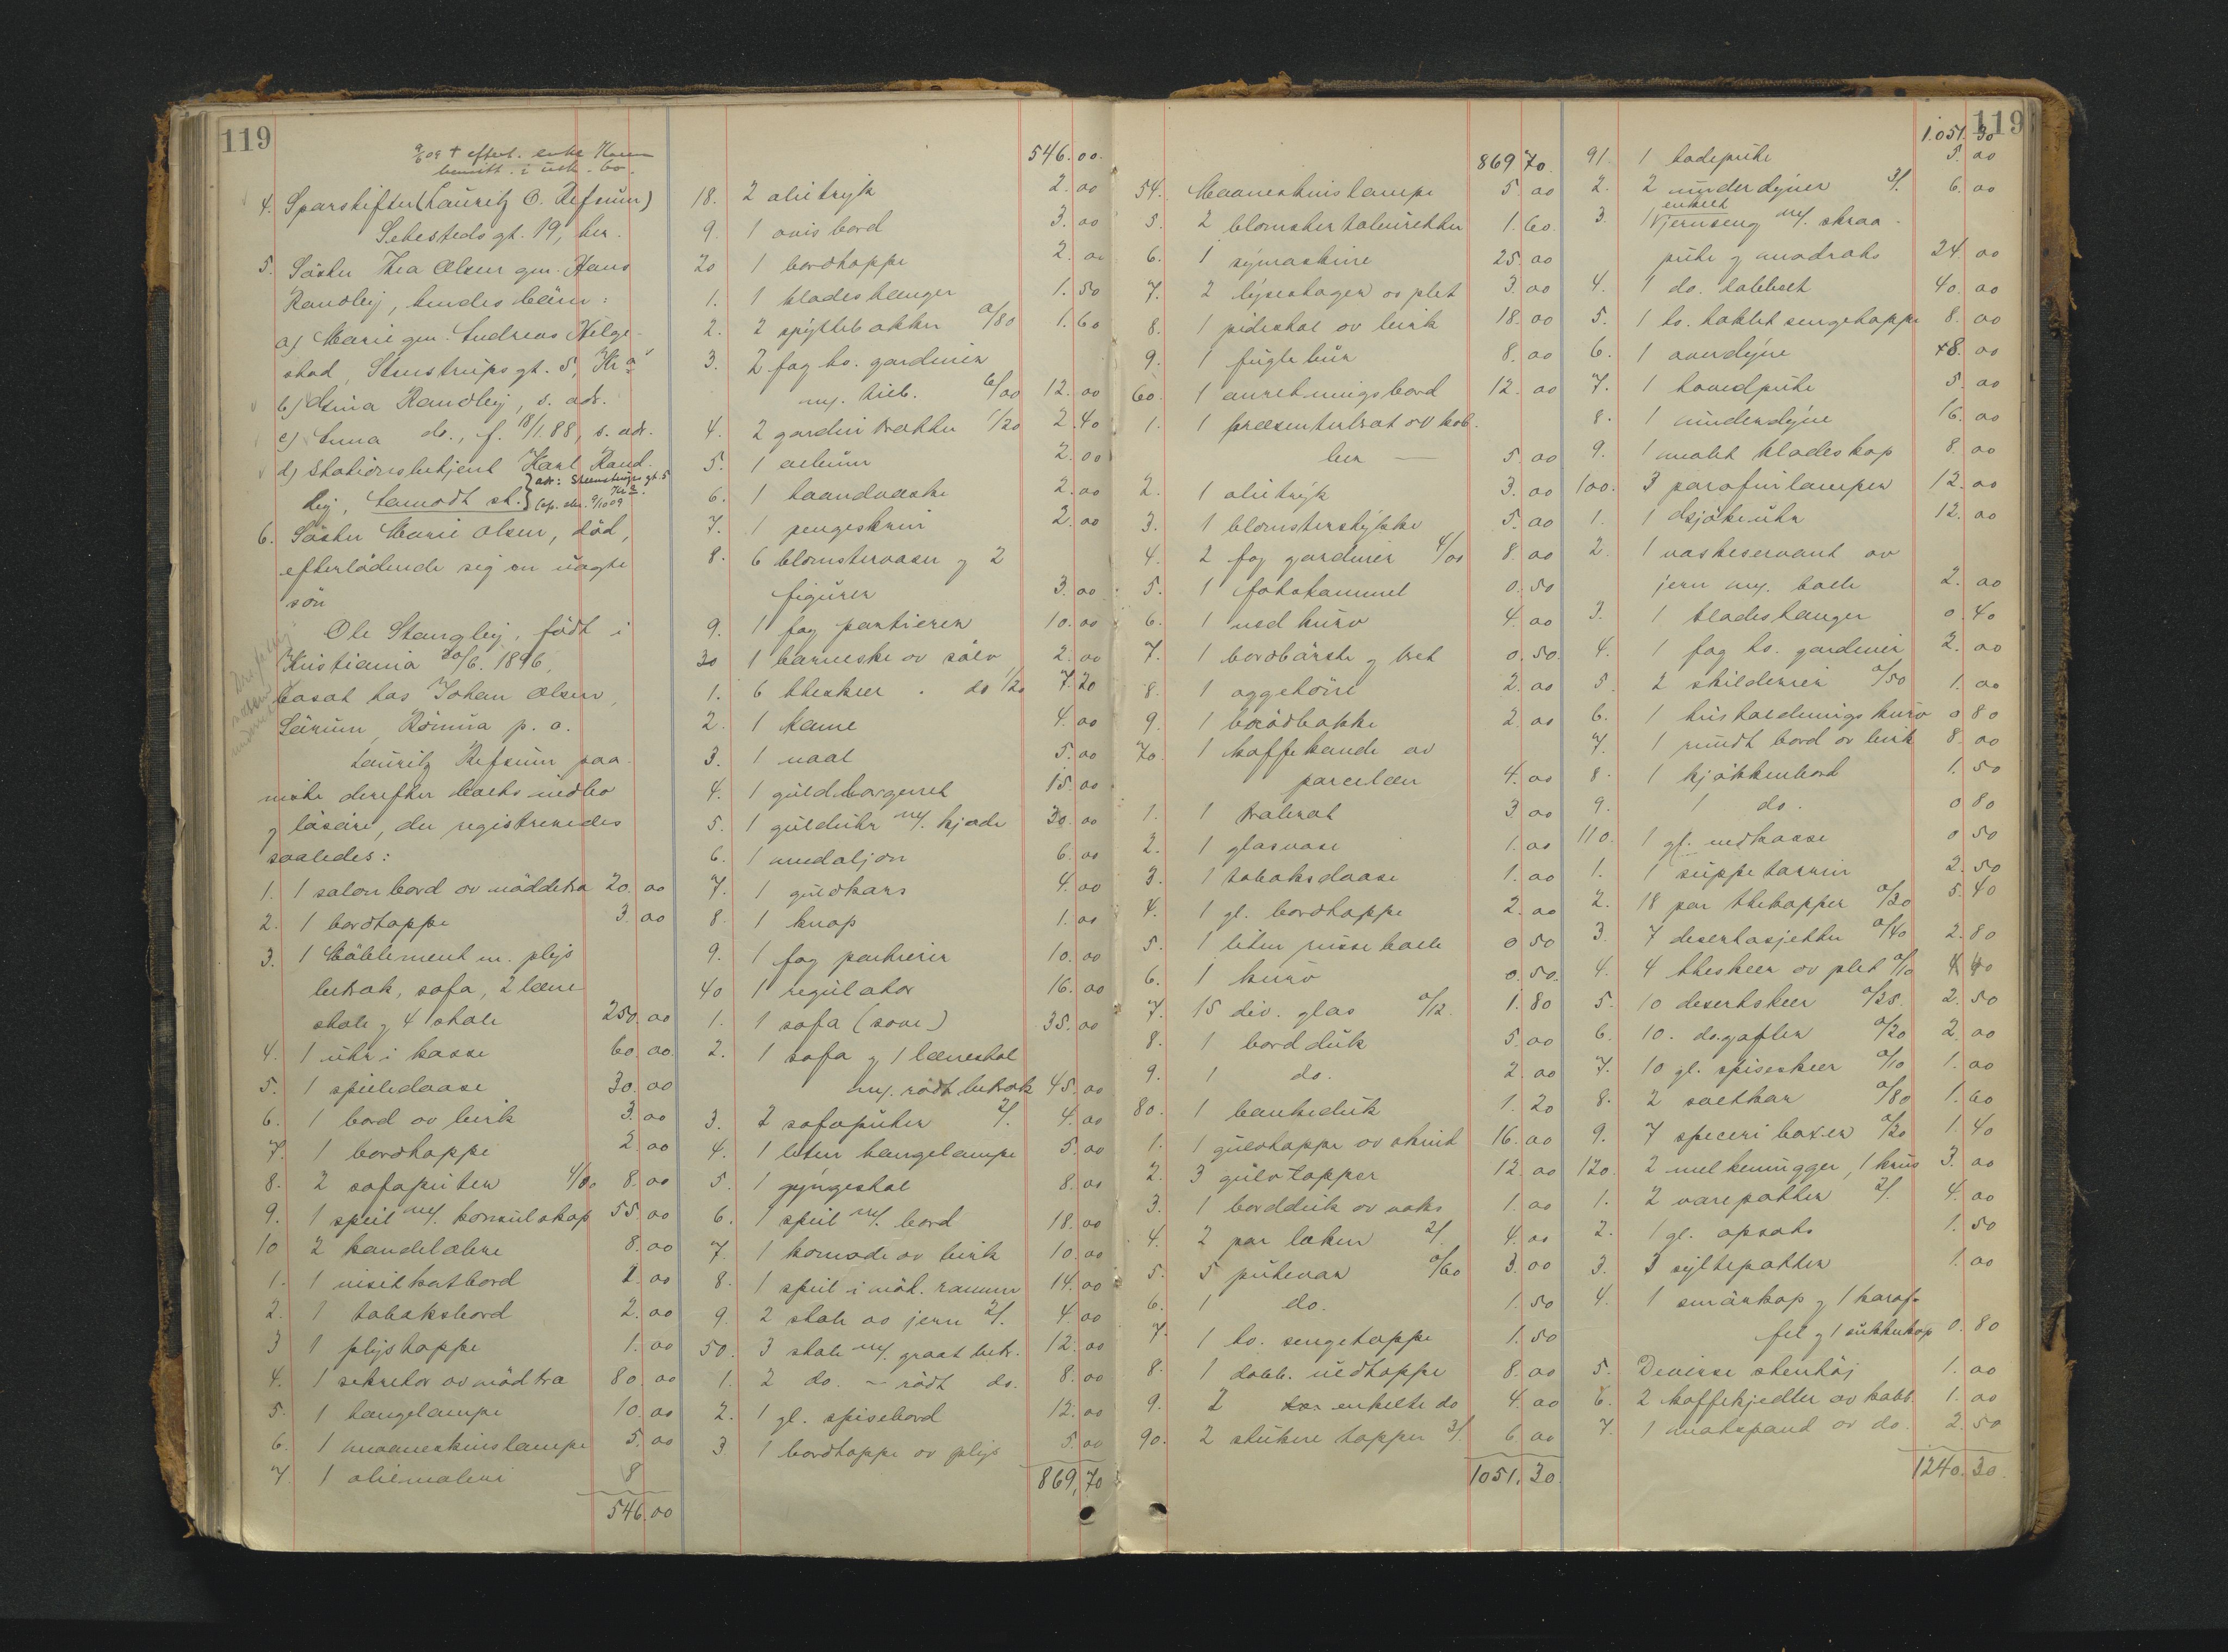 119
9/6 09 + efterl. enke Karen
bemitt. i usk. bo.
4. Sparskifter (Lauritz O. Refsum)
Sehesteds gt. 19, her.
5. Søster Thea Olsen gm. Hans
Randlej, hendes børn:
a) Marie gm. Andreas Helge-
stad, Stenstrups gt. 5, Kra
b) Anna Randlej, s. adr.
c) Anna do., f. 18/1 88, s. adr.
d) Stationsbetjent Karl Rand-
lej, Lamodt st. } adr: Steenstrups gt. 5 Kra.
6. Søster Marie Olsen, død,
efterladende sig en uægte
søn
Ole Stanglej, født i
Kristiania 20/6. 1896,
bosat hos Johan Olsen,
Sørum, Rømua p. o.
Lauritz Refsum paa-
viste derefter boets indbo
og løsøre, der registreredes
saaledes:
1. 1 salonbord av nøddetræ 20.00
2. 1 bordtæppe 3.00
3. 1 Møblement m. plys
betræk, sofa, 2 læne-
stole og 4 stole 250.00
4. 1 uhr i kasse 60.00
5. 1 spilledaase 30.00
6. 1 bord av birk 3.00
7. 1 bordtæppe 2.00
8. 2 sofaputer 4/00 8.00
9. 1 speil m/. konsulskap 55.00
10 2 kandelabre 8.00
1. 1 visitkortbord 2.00
2. 1 tobaksbord 2.00
3 1 plystæppe 1.00
4. 1 sekretær av nødtræ 80.00
5. 1 hængelampe 10.00
6. 1 maaneskinslampe 5.00
7. 1 oliemaleri 8
546.00
546.00
18. 2 olietryk 2.00
9. 1 avisbord 3.00
20 1 bordtæppe 2.00
1. 1 klædeshænger 1.50
2. 2 spyttebakker a/80 1.60
3. 2 fag hv. gardiner
m/. tilb. 6/00 12.00
4. 2 gardintrækker 1/20 2.40
5. 1 album 2.00
6. 1 haandvæske 2.00
7. 1 pengeskrin 2.00
8. 6 blomstervaser og 2
figurer 3.00
9. 1 fag portierer 10.00
30 1 barneske av sølv 2.00
1. 6 theskeer . do 1/20 7.20
2. 1 kame 4.00
3. 1 naal 5.00
4. 1 guldbargenet 15.00
5. 1 gulduhr m/. kjæde 30.00
6. 1 medaljon 6.00
7. 1 guldkors 4.00
8. 1 knap 1.00
9. 1 fag portierer 10.00
40 1 regulator 16.00
1. 1 sofa (sove) 35.00
2. 1 sofa og 1 lænestol
m/. rødt betræk 45.00
3. 2 sofaputer 2/. 4.00
4. 1 liten hængelampe 5.00
5. 1 gyngestol 8.00
6. 1 speil m/. bord 18.00
7. 1 komode av birk 10.00
8. 1 speil i nød. ramme 14.00
9. 2 stole av jern 2/. 4.00
50. 3 stole m/. graat betr. 12.00
1. 2 do. – rødt do. 8.00
2. 1 gl. spisebord 12.00
3 1 bordtæppe av plys 5.00
869,70
869 70
54. Maaneskinslampe 5.00
5. 2 blomstertaburetter 1.60
6. 1 symaskine 25.00
7. 2 lysestager av plet 3.00
8. 1 pidestal av birk 18.00
9. 1 fuglebur 8.00
60. 1 anretningsbord 12.00
1. 1 præsenterbræt av kob-
ber — 5.00
2. 1 olietryk 3.00
3. 1 blomsterstykke 5.00
4. 2 fag gardiner 4/00 8.00
5. 1 fotskammel 0.50
6. 1 vedkurv 4.00
7. 1 bordbørste og bret 0.50
8. 1 æggekoker 2.00
9. 1 brødbakke 2.00
70. 1 kaffekande av
porcelæn 4.00
1. 1 traktat 3.00
2. 1 glasvase 1.00
3. 1 tobaksdaase 1.00
4. 1 gl. bordtæppe 2.00
5. 1 liten pusse bolle 0.50
6. 1 kurv 0.50
7. 15 div. glas a/12 1.80
8. 1 bordduk 5.00
9. 1 do. 2.00
80. 1 bankeduk 1.20
1. 1 gulvtæppe av skind 16.00
2. 3 gulvtæpper 12.00
3. 1 bordduk av voks 1.00
4. 2 par laken 2/. 4.00
5. 5 putevar a/60 3.00
6. 1 do. 1.50
7. 1 hv. sengetæppe 1.50
8. 1 dobb. uldtæppe 8.00
9. 2 enkelte do 4.00
90. 2 stukne tæpper 3/. 6.00
1051.30
119
1.051.30
91 1 hodepute 5.00
2. 2 underdyner 3/. 6.00
3. 1 enkelt jernseng m/. skraa-
pute og madrats 24.00
4. 1 do. dobbelt 40.00
5. 1 hv. hæklet sengetæppe 8.00
6. 1 overdyne 8.00
7. 1 hovedpute 5.00
8. 1 underdyne 16.00
9. 1 malet klædeskap 8.00
100. 3 parafinlamper 12.00
1. 1 kjøkenuhr 12.00
2. 1 vaskeservant av
jern m/. bolle 2.00
3. 1 klædeshænger 0.40
4. 1 fag hv. gardiner 2.00
5 2 skilderier a/50 1.00
6. 1 husholdnings kurv 0 80
7. 1 rundt bord av birk 8.00
8. 1 kjøkkenbord 1.50
9. 1 do. 0 80
110. 1 gl. vedkasse 0 50
1. 1 suppeterrin 2.50
2. 18 par thekopper a/30 5.40
3. 7 desertasjetter a/40 2.80
4. 4 theskeer av plet a/10 40
5. 10 desertskeer a/25 2.50
6. 10. do. gafler a/20 2.00
7. 10 gl. spiseskeer a/10 1.00
8. 2 saltkar a/80 1.60
9. 7 speceri bokser a/20 1.40
120. 2 melkemugger, 1 krus 3.00
1. 2 vasepotter 2/. 4.00
2. 1 gl. opsats 1.50
3. 3 syltepotter 1.00
4. 1 smørkop og 1 karaf-
fel og 1 sukkerkop 0.80
5. Diverse stentøj 1.00
6. 2 kaffekjedler av kobb. 1.00
7. 1 matspand av do. 2.50
1240.30